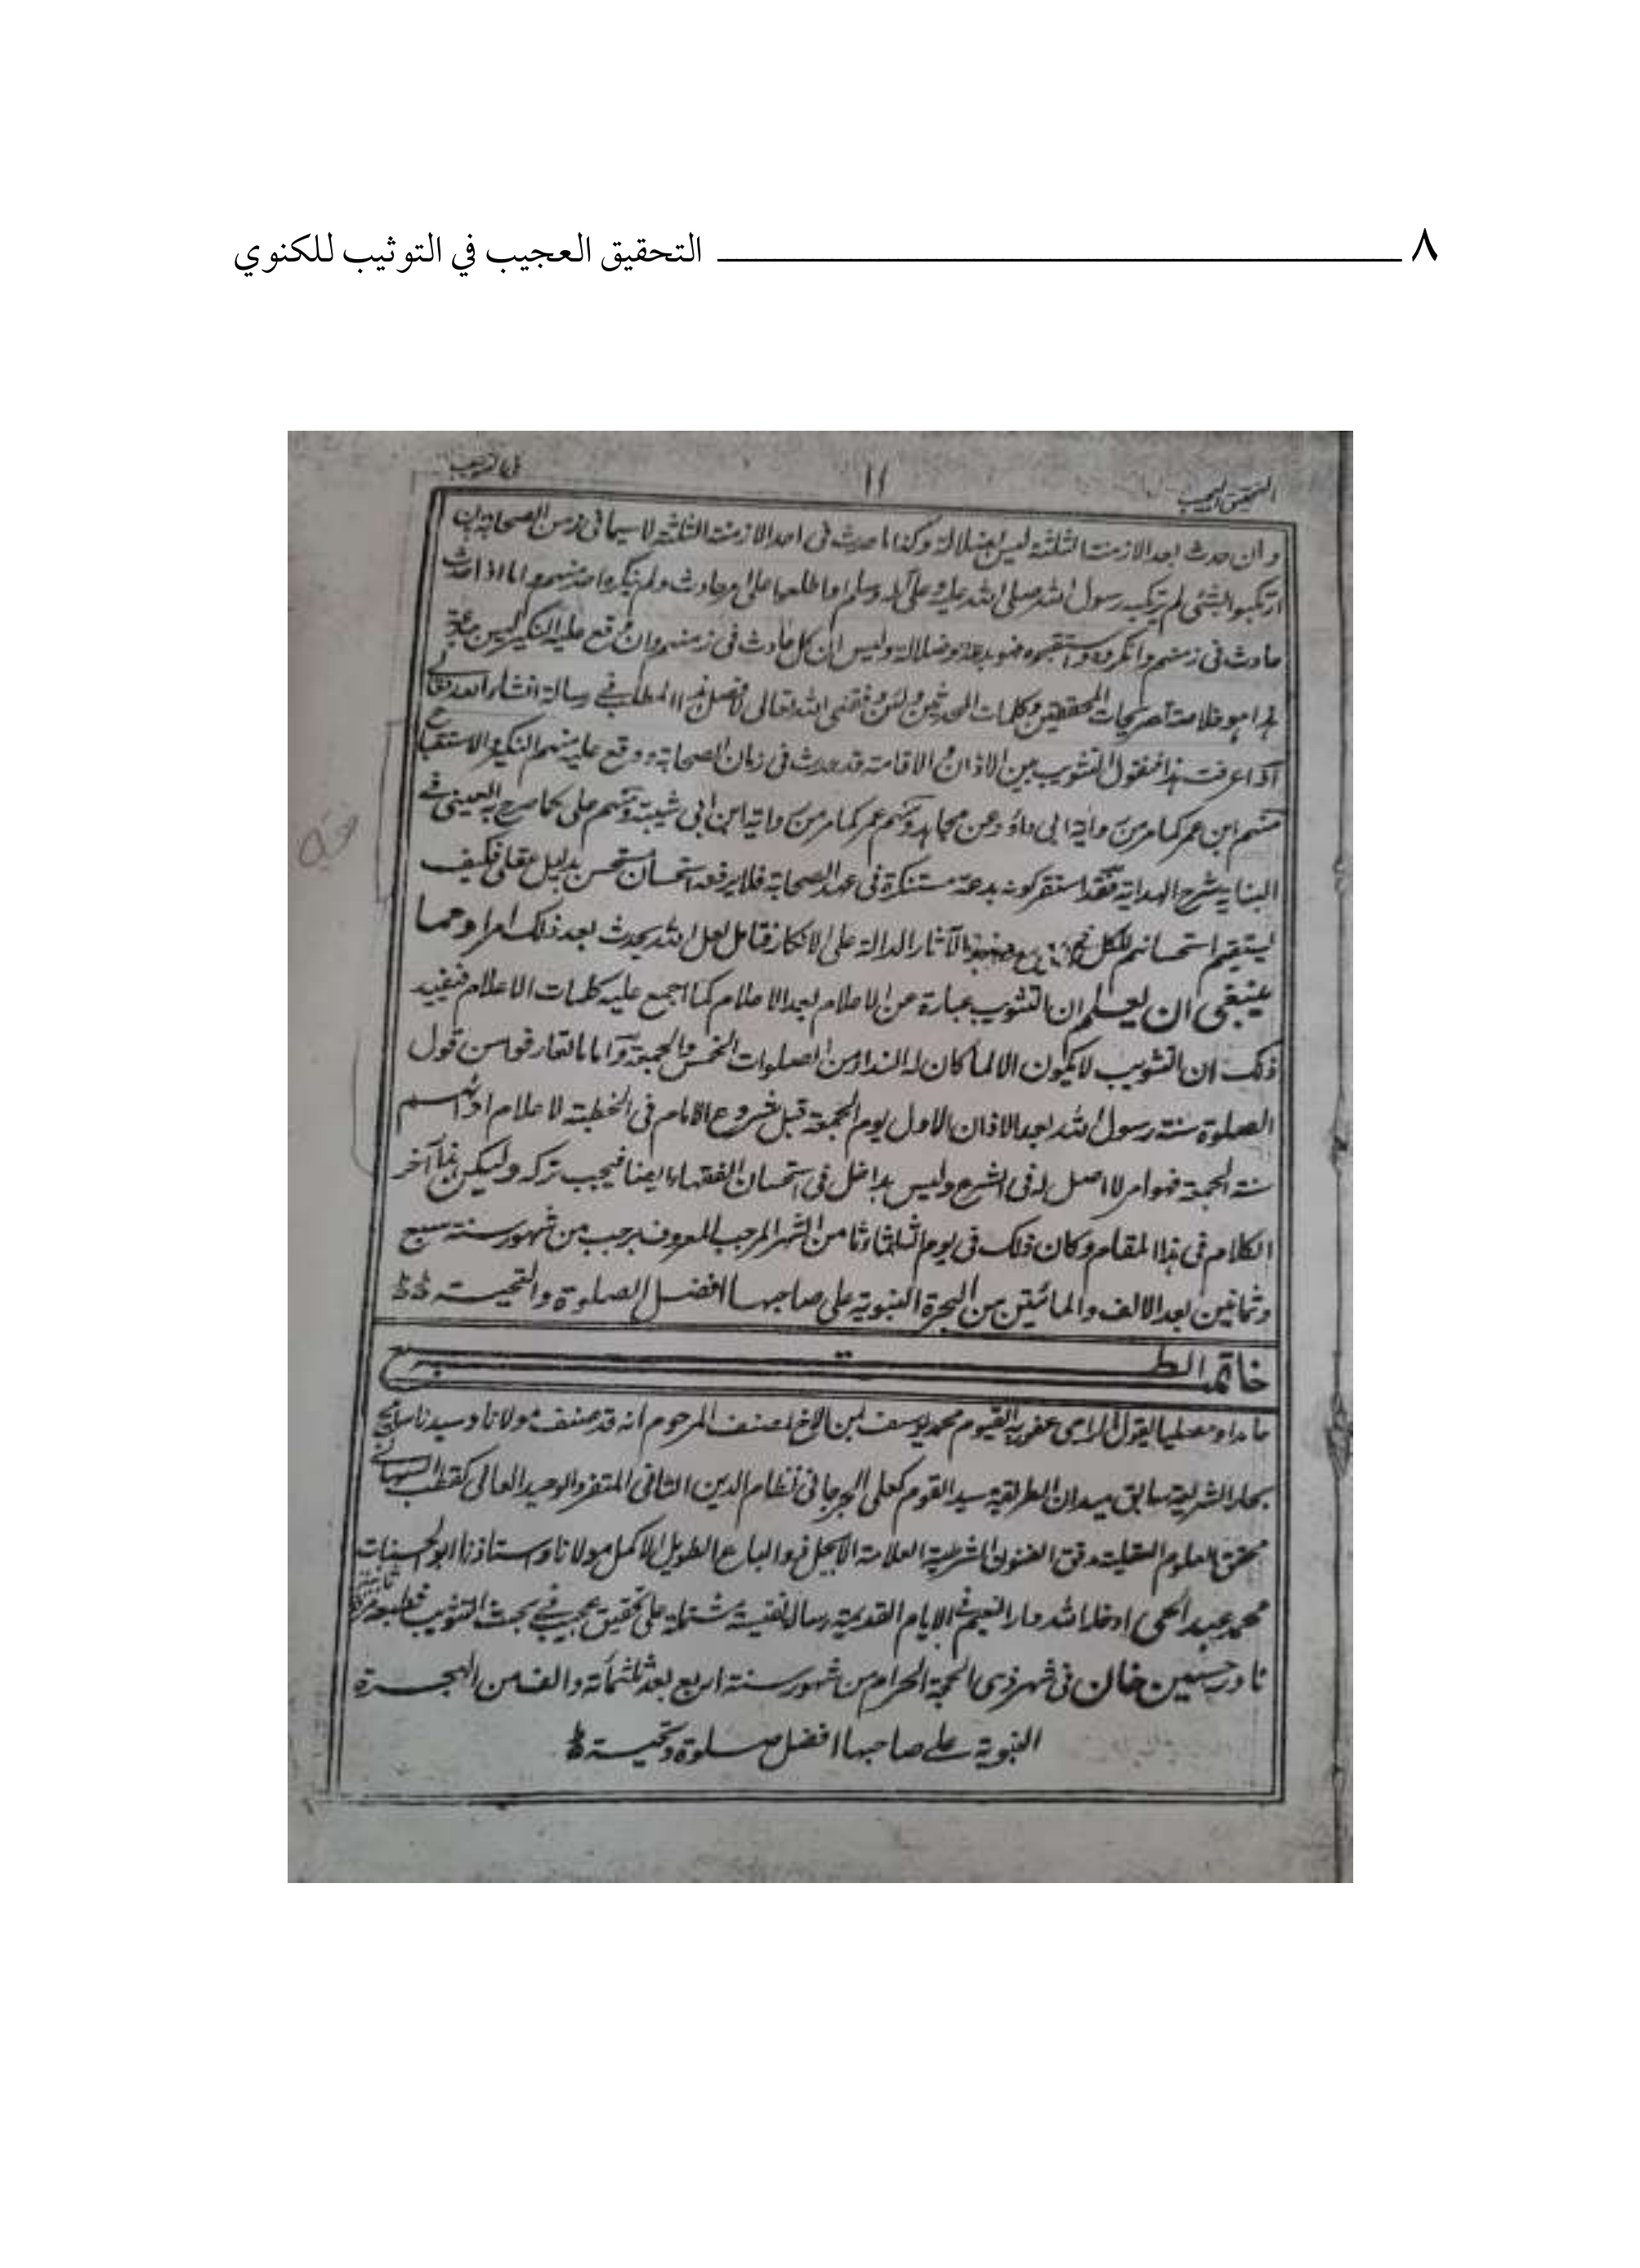 ٨ التحقيق العجيب في التوثيب للكنوي
١١
وان حدث بعد الازمنة الثلثة ليس بضلالة وكذا ما حدث فى احد الازمنة الثلثة لاسيما فى زمن الصحابة بان
ارتكبوا لشئ لم يرتكبه رسول الله صلى الله عليه وعلى آله وسلم او اطلعوا على امر حادث ولم ينكره احد منهم واما اذا حدث
حادث فى زمنهم وانكروه واستقبحوه فهو بدعة وضلالة وليس ان كل حادث فى زمنهم وان وقع عليه النكير ليس ببدعة
هذا هو خلاصة تصريحات المحققين وكلمات المحدثين ولئن وفقنى الله تعالى لافصل هذا المطلب فى رسالة انشاء الله تعالى
اذا عرفت هذا فنقول التثويب بين الاذان والاقامة قد حدث فى زمان الصحابة ووقع عليه منهم النكير والاستقباح
منهم ابن عمر كما مر من رواية ابى داؤد عن مجاهد ومنهم عمر كما مر من رواية ابن ابى شيبة ومنهم على كما صرح به العينى فى
البناية شرح الهداية فقد استقر كونه بدعة مستنكرة فى عهد الصحابة فلا يرفعه استحسان مستحسن بدليل عقلى فكيف
يستقيم استحسانهم للكل الآثار الدالة على الانكار فتامل لعل الله يحدث بعد ذلك امرا ومما
ينبغى ان يعلم ان التثويب عبارة عن الاعلام بعد الاعلام كما اجمع عليه كلمات الاعلام فيفيد
ذلك ان التثويب لا يكون الا لما كان له النداء من الصلوات الخمس والجمعة واما ما تعارفوا من قول
الصلوة سنة رسول الله بعد الاذان الاول يوم الجمعة قبل شروع الامام فى الخطبة لاعلام اداءهم
سنة الجمعة فهو امر لا اصل له فى الشرع وليس بداخل فى استحسان الفقهاء ايضا فيجب تركه وليكن هذا آخر
الكلام فى هذا المقام وكان ذلك فى يوم الثلثاء من الشهر المرجب المعروف برجب من شهور سنة سبع
وثمانين بعد الالف والمائتين من الهجرة النبوية على صاحبها افضل الصلوة والتحية
خاتمة الطبع
حامدا ومصليا يقول الراجى عفو ربه القيوم محمد يوسف ابن الاخ لمصنف المرحوم انه قد صنف مولانا وسيدنا سابح
بحار الشريعة سابق ميدان الطريقة سيد القوم كعلى الجرجانى نظام الدين الثانى المتفرد الوحيد العالى كقطب
محقق العلوم العقلية مدقق الفنون الشرعية العلامة الابجل ذو الباع الطويل الاكمل مولانا واستاذنا ابو الحسنات
محمد عبد الحى ادخله الله دار النعيم فى الايام القديمة رسالة نفيسة مشتملة على تحقيق عجيب فى بحث التثويب
نادر حسين خان فى شهر ذى الحجة الحرام من شهور سنة اربع بعد ثلثمائة والف من الهجرة
النبوية على صاحبها افضل صلوة وتحية